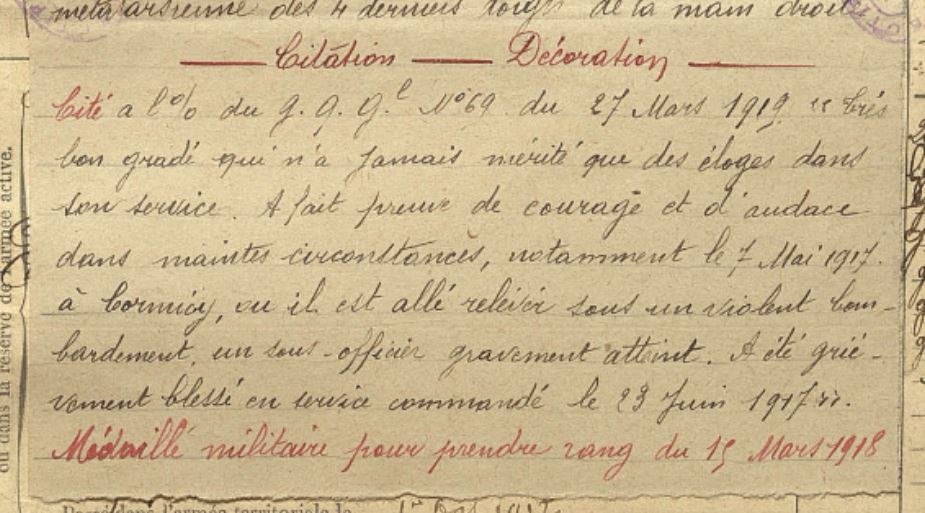 métatarsienne des 4 derniers doigts de la main droite
Citation — Décoration
Cité a l'o/o du G. Q. Gl N° 69 du 27 Mars 1919 "très
bon gradé qui n'a jamais mérité que des éloges dans
son service. A fait preuve de courage et d'audace
dans maintes circonstances, notamment le 7 Mai 1917.
à Cormicy, ou il est allé relever sous un violent bom-
bardement, un sous-officier gravement atteint. A été griè-
vement blessé en service commandé le 23 Juin 1917".
Médaille militaire pour prendre rang du 15 Mars 1918
Passé dans l'armée territoriale le
ou dans la réserve de l'armée active.